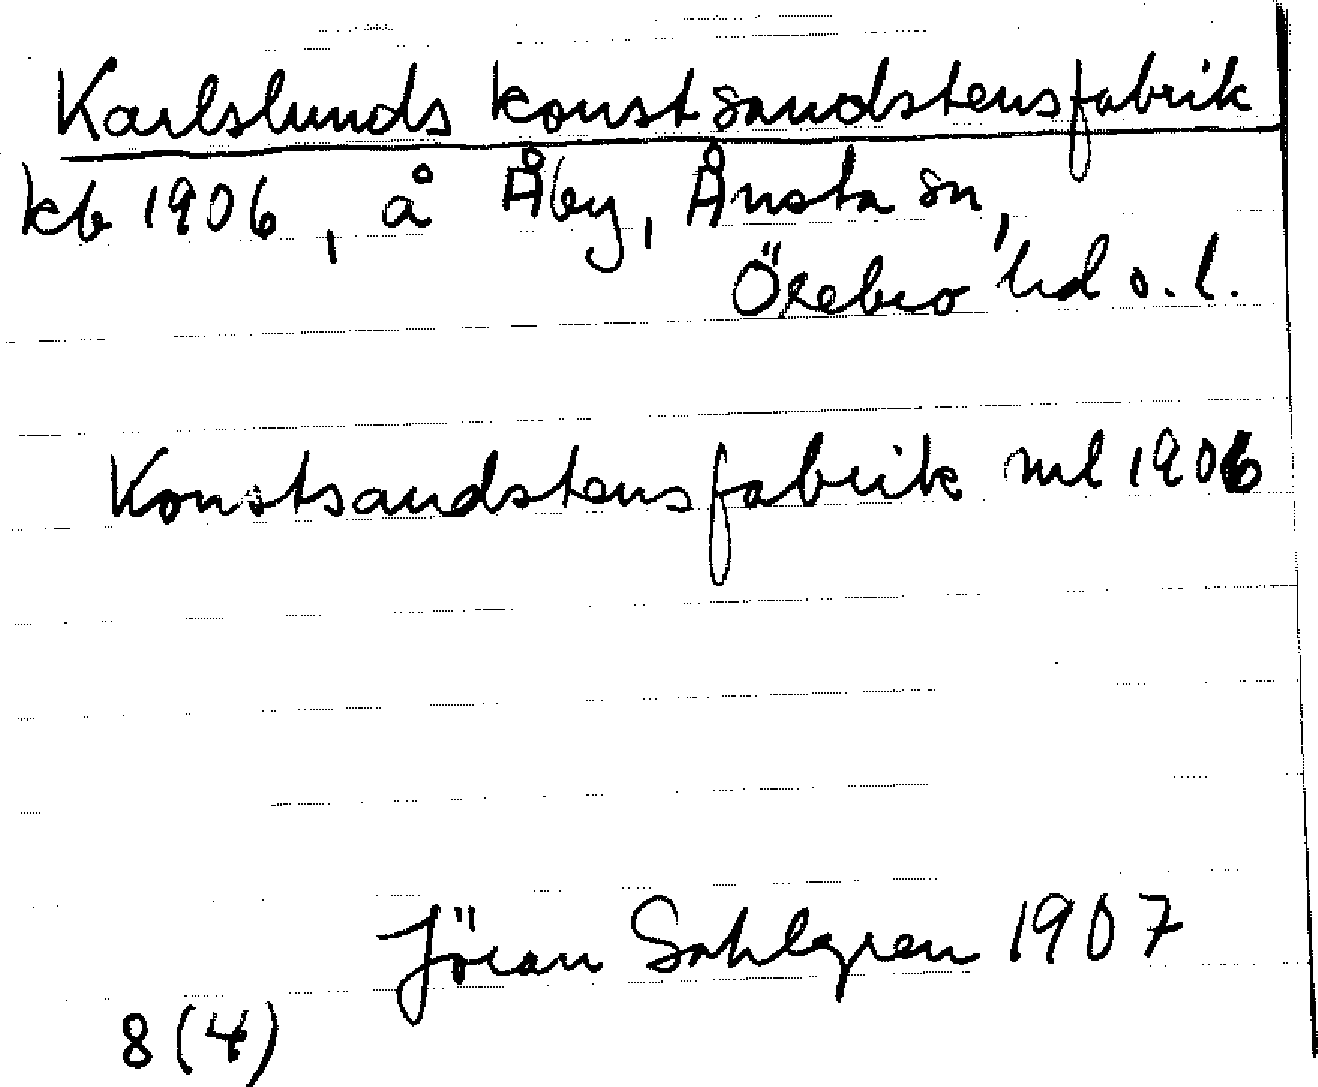 Karlslunds konstsandstensfabrik
kb 1906, å Åby, Ånsta sn,
Örebro hd o. l.
Konstsandstensfabrik ml 1906
Jöran Sahlgren 1907
8 (4)